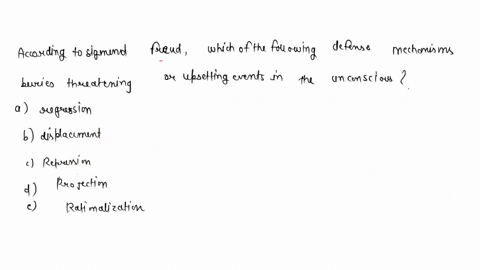 According to sigmend fraud, which of the following defense mechanisms
buries threatening or upsetting events in the unconscious?
a) regression
b) displacement
c) Repression
d) Projection
e) Rationalization